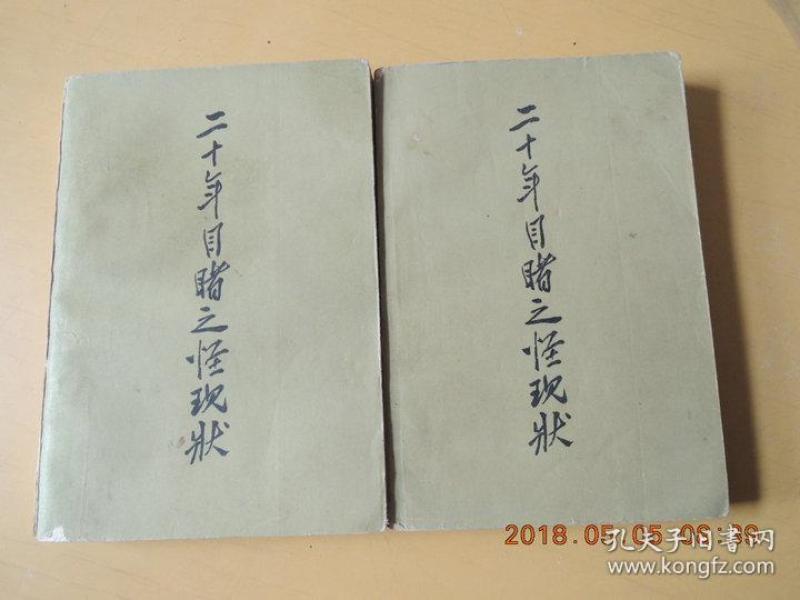 二十年目睹之怪現狀
二十年目睹之怪現狀
2018.05.05
孔夫子旧書网
www.kongfz.com